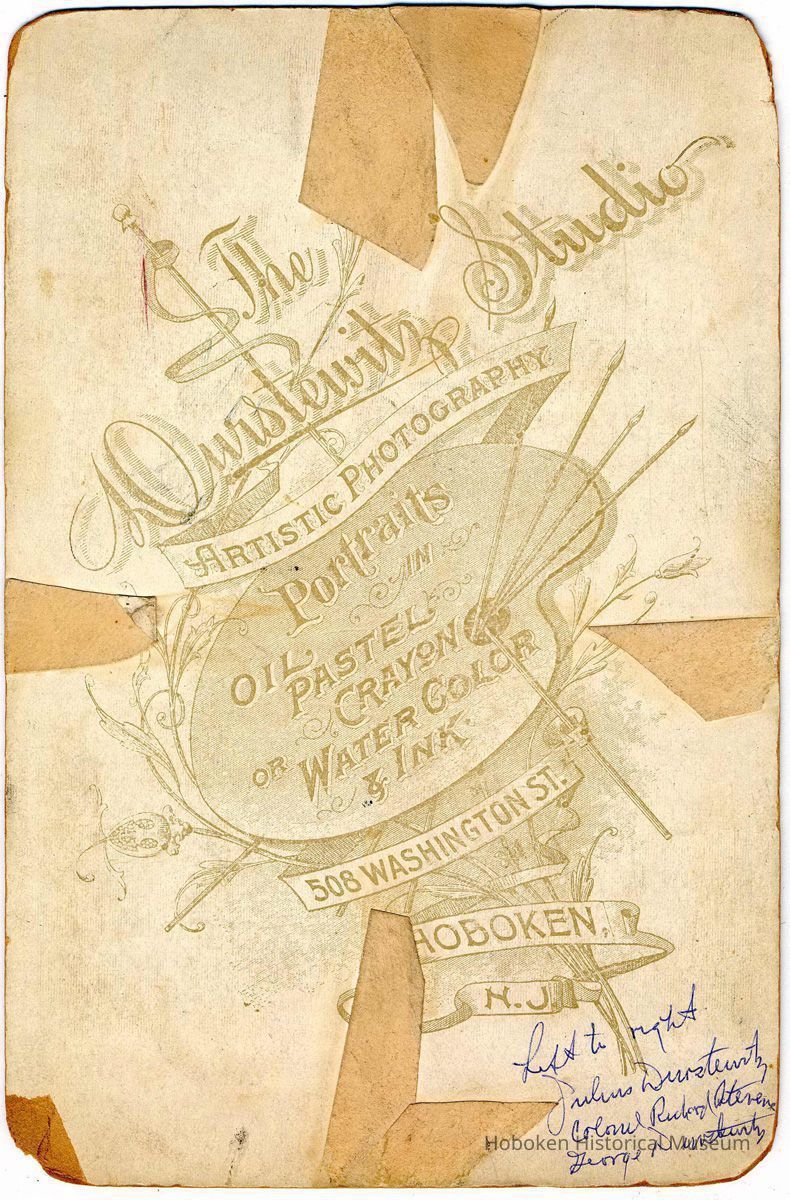 The
Durstewitz Studio
ARTISTIC PHOTOGRAPHY
Portraits
IN
OIL
PASTEL
CRAYON
OR WATER COLOR
& INK.
508 WASHINGTON ST.
HOBOKEN,
N.J.
Left to right
Julius Durstewitz
Colonel Richard Stevens
George Durstewitz
Hoboken Historical Museum